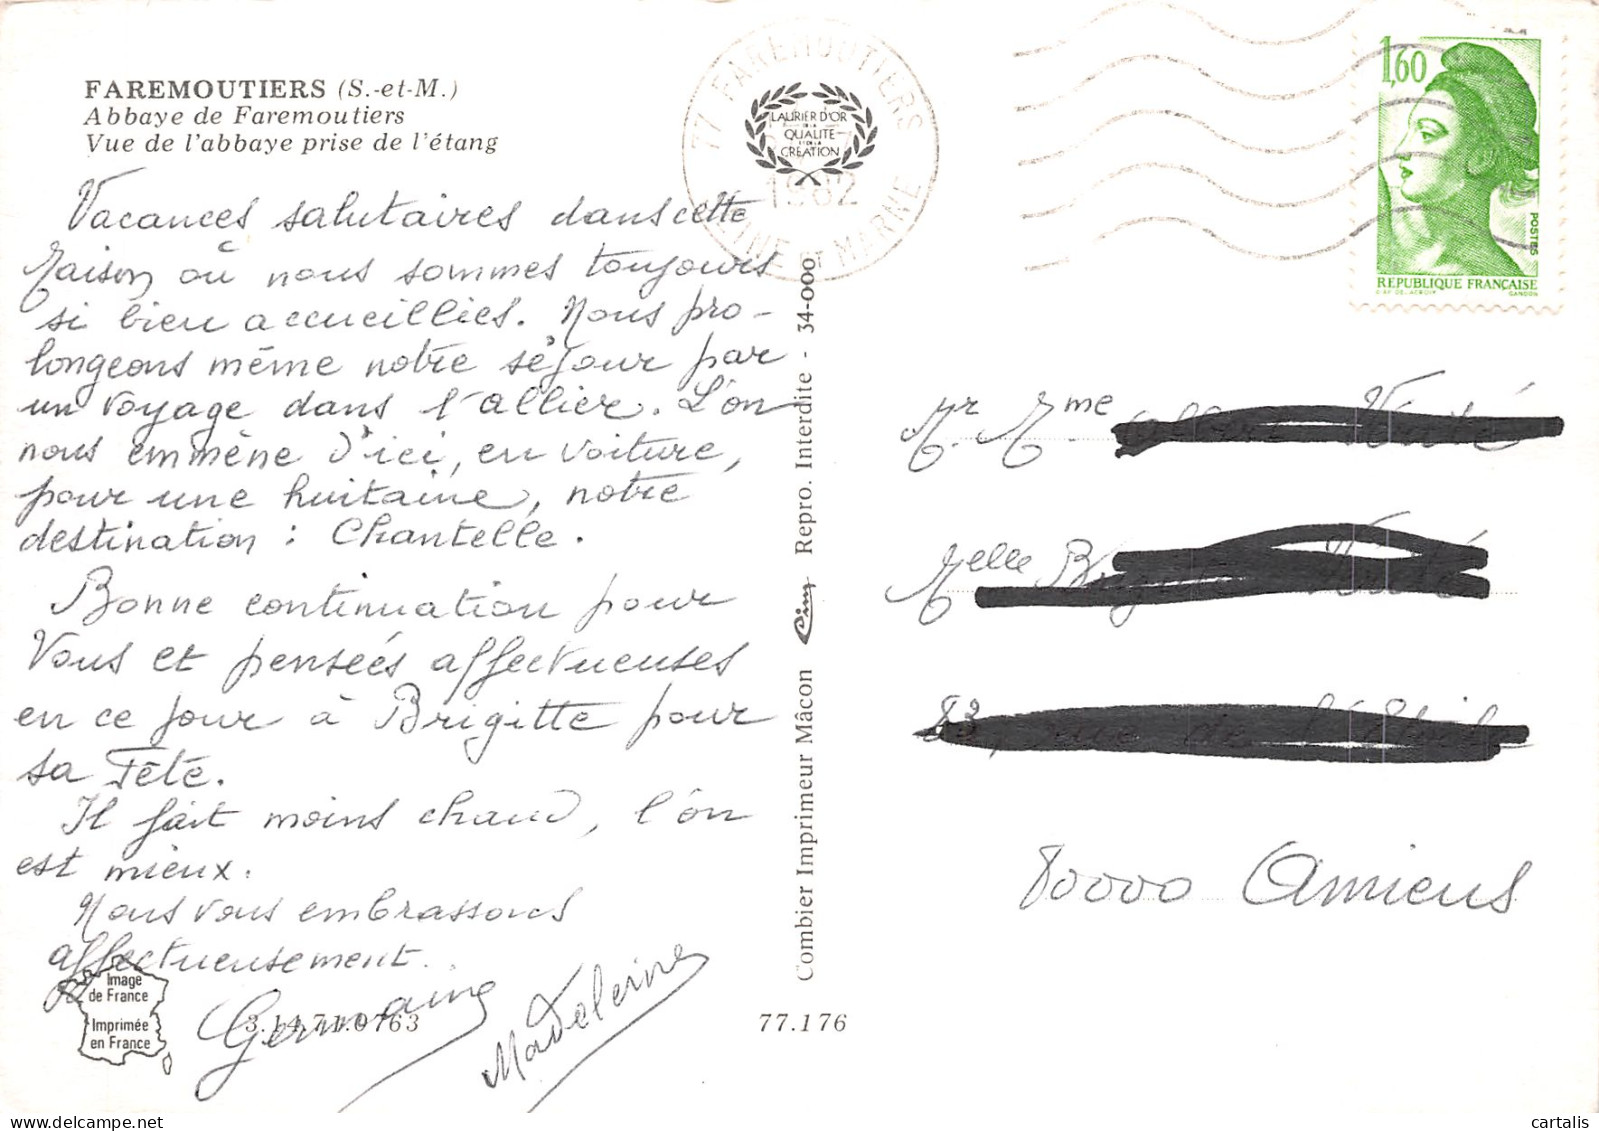 FAREMOUTIERS (S.-et-M.)
Abbaye de Faremoutiers
Vue de l'abbaye prise de l'étang
Vacances salutaires dans cette
Maison où nous sommes toujours
si bien accueillies. Nous pro-
longeons même notre séjour par
un voyage dans l'allier. L'on
nous emmène d'ici, en voiture,
pour une huitaine, notre
destination : Chantelle.
Bonne continuation pour
Vous et pensées affectueuses
en ce jour à Brigitte pour
sa Fête.
Il fait moins chaud, l'on
est mieux.
Nous vous embrassons
affectueusement.
Germaine
Madeleine
Image
de France
Imprimée
en France
3.14.71.0763
77.176
Combier Imprimeur Mâcon Cim Repro. Interdite - 34-000
77 FAREMOUTIERS
LAURIER D'OR
DE LA
QUALITÉ
ET DE LA
CRÉATION
1982
SEINE ET MARNE
1,60
POSTES
REPUBLIQUE FRANÇAISE
D'AP. DELACROIX GANDON
Mr. Mme
Melle
80000 Amiens
cartalis